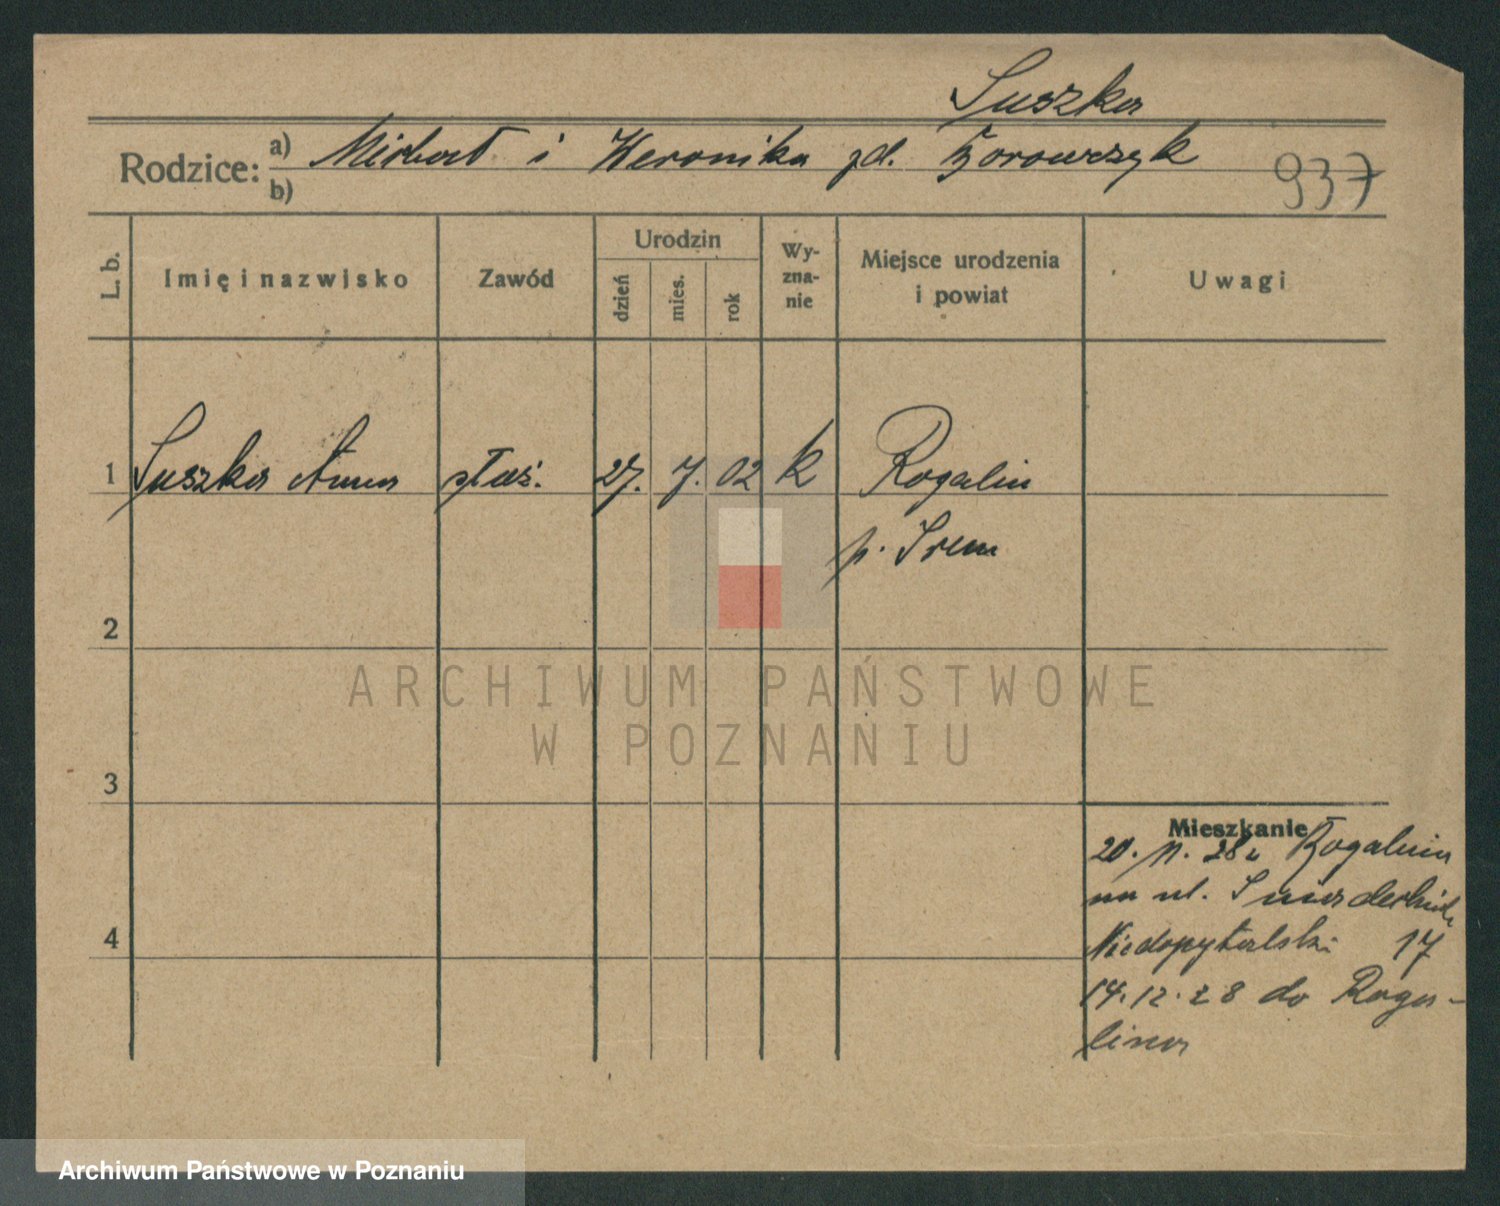 Suszka
Rodzice: a) Michał i Weronika zd. Borowczyk
b)
937
L. b.
Imię i nazwisko
Zawód
Urodzin
dzień
mies.
rok
Wy-
zna-
nie
Miejsce urodzenia
i powiat
Uwagi
1 Suszka Anna służ. 27. 7. 02 k Rogalin
p. Śrem
2
ARCHIWUM PAŃSTWOWE
W POZNANIU
3
Mieszkanie
20. 28 z Rogalina
na ul. Śniadeckich
Niedopytalski 17
14.12.28 do Roga-
lina
4
Archiwum Państwowe w Poznaniu